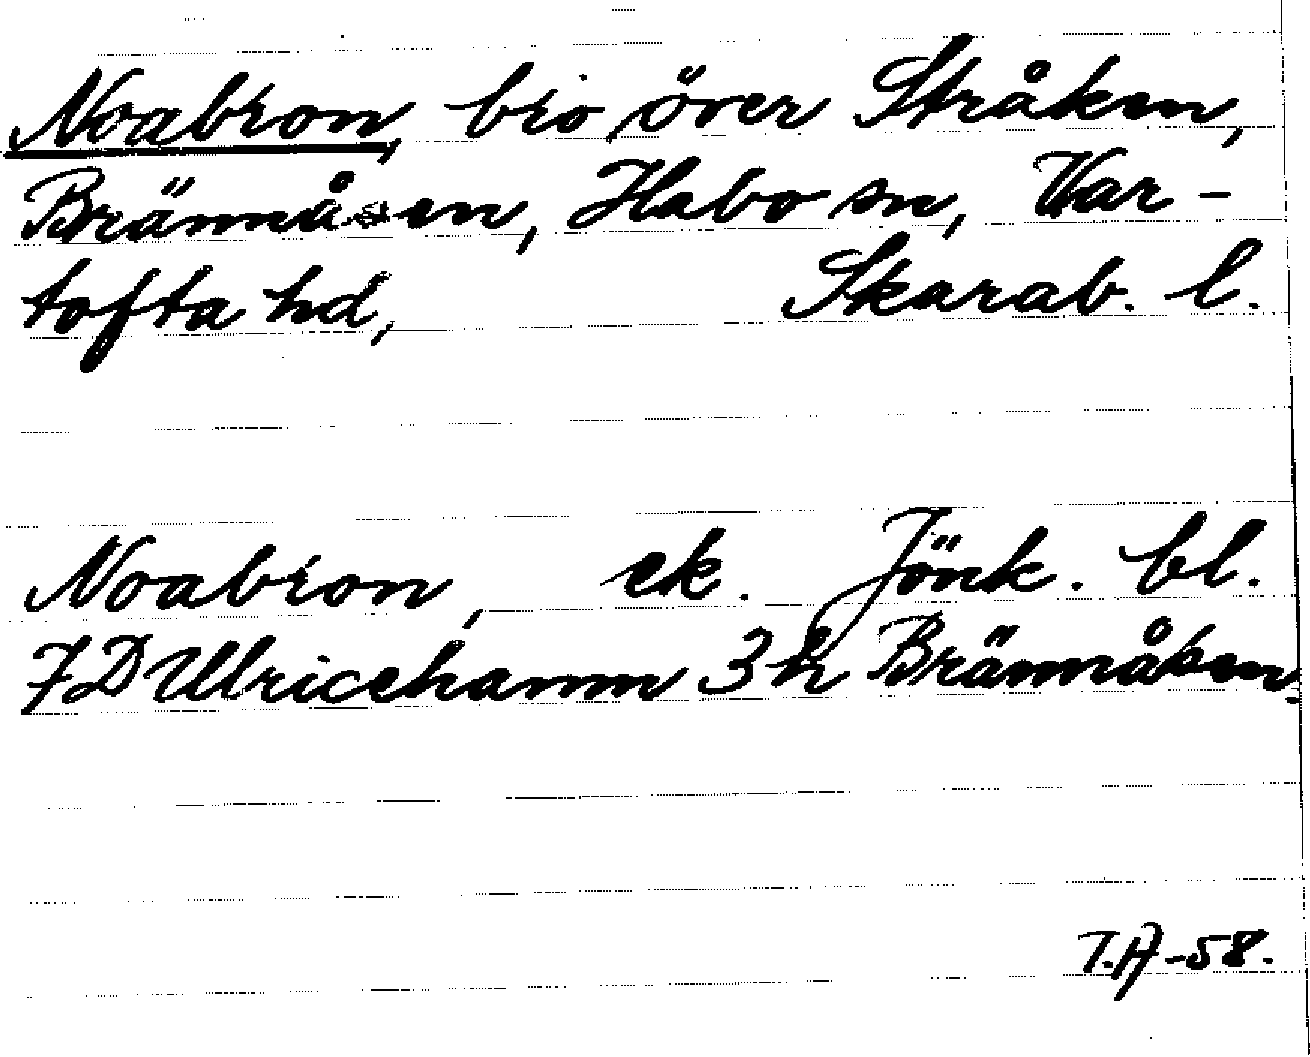 Noabron, bro över Stråken,
Brännåsen, Habo sn, Var-
tofta hd, Skarab. l.
Noabron, ek. Jönk. bl.
7D Ulricehamn 3 h Brännåsen
T.A-58.